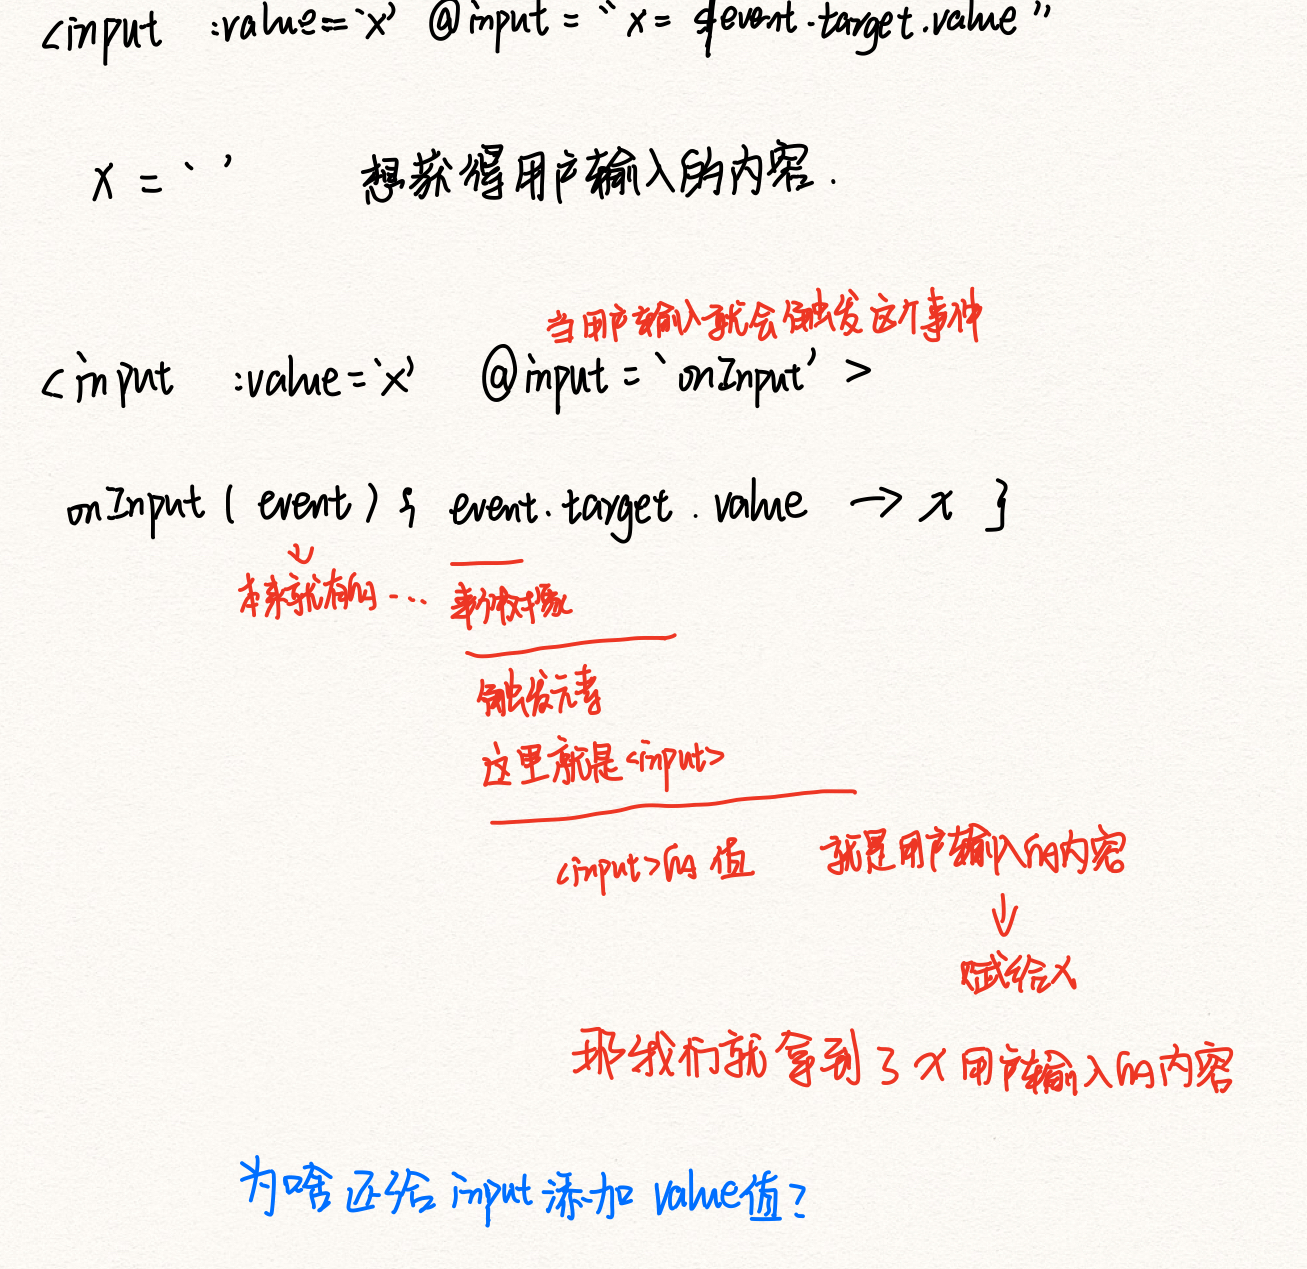 <input :value=='x' @input = "x= $event.target.value"
x = ' ' 想获得用户输入的内容.
当用户输入就会触发这个事件
<input :value='x' @input = 'onInput' >
onInput ( event ) { event.target.value → x }
本来就有的... 事件对象
触发元素
这里就是<input>
<input>的值 就是用户输入的内容
↓
赋给x
那我们就拿到了x用户输入的内容
为啥还给input添加value值?